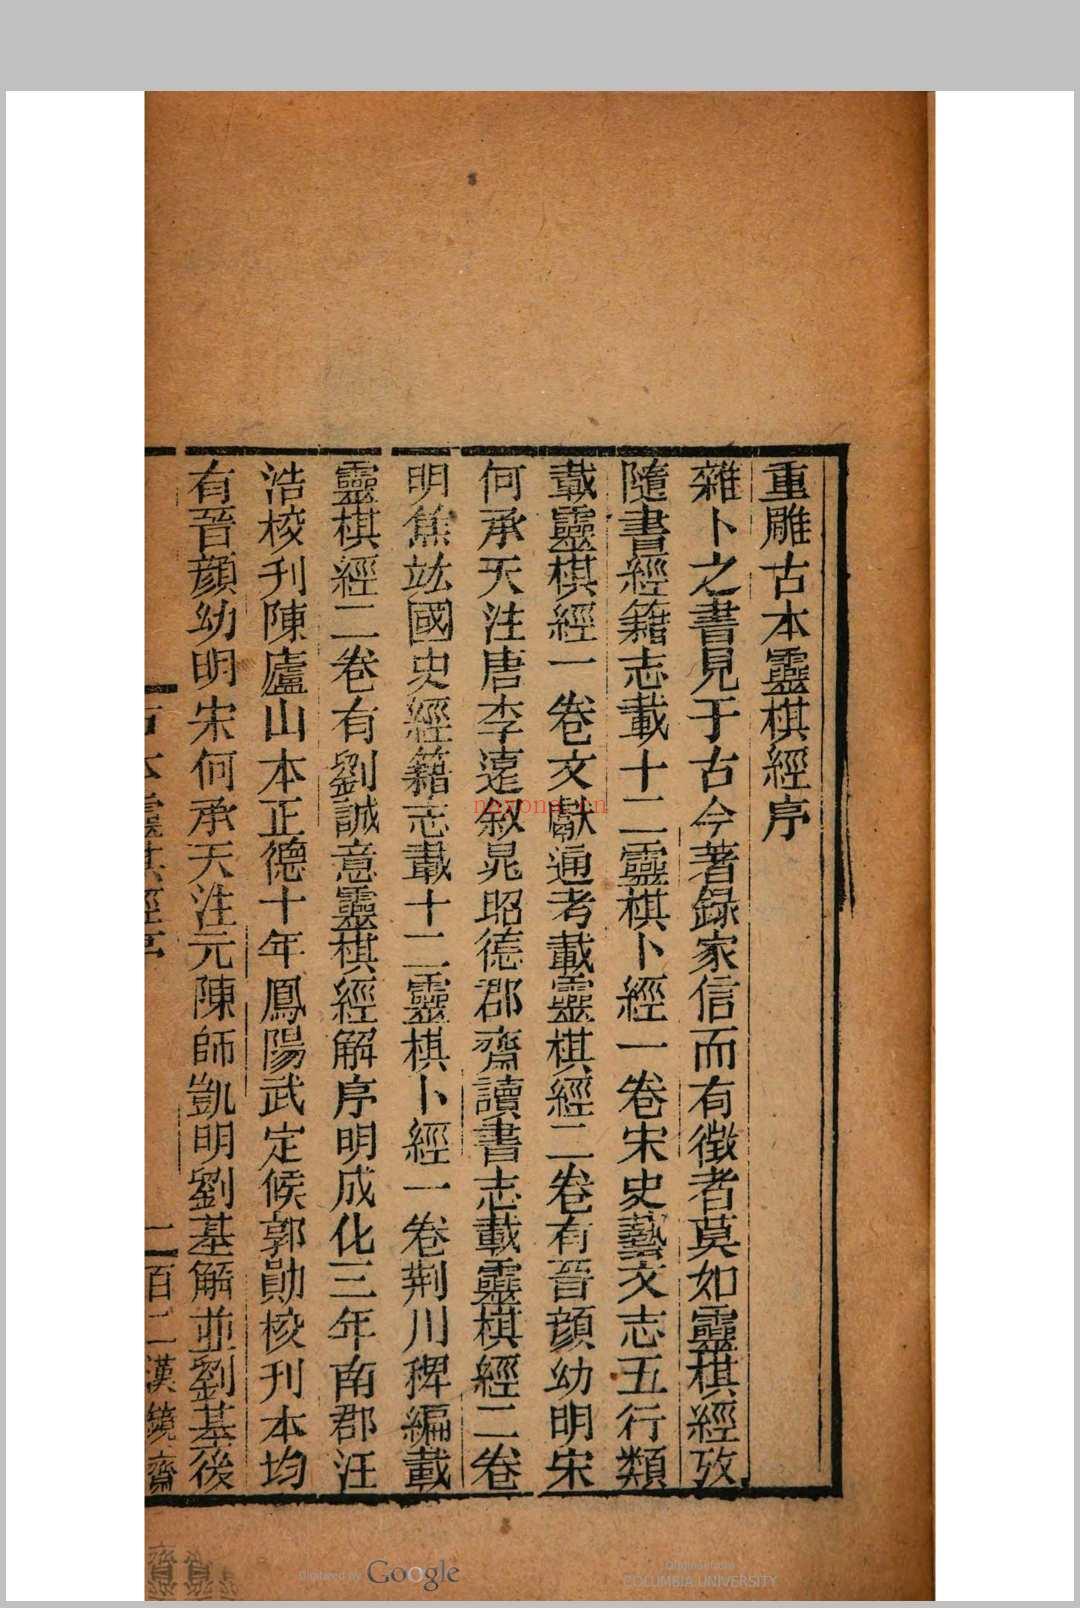 重雕古本靈棋經序
雜卜之書見于古今著錄家信而有徵者莫如靈棋經攷
隨書經籍志載十二靈棋卜經一卷宋史藝文志五行類
載靈棋經一卷文獻通考載靈棋經二卷有晉顔幼明宋
何承天注唐李遠叙晁昭德郡齋讀書志載靈棋經二卷
明焦竑國史經籍志載十二靈棋卜經一卷荆川稗編載
靈棋經二卷有劉誠意靈棋經解序明成化三年南郡汪
浩校刊陳廬山本正德十年鳳陽武定候郭勛校刊本均
有晉顔幼明宋何承天注元陳師凱明劉基解並劉基後
古本靈棋經序
一
百二漢鏡齋
nayona.cn
Digitized by Google
Original from
COLUMBIA UNIVERSITY